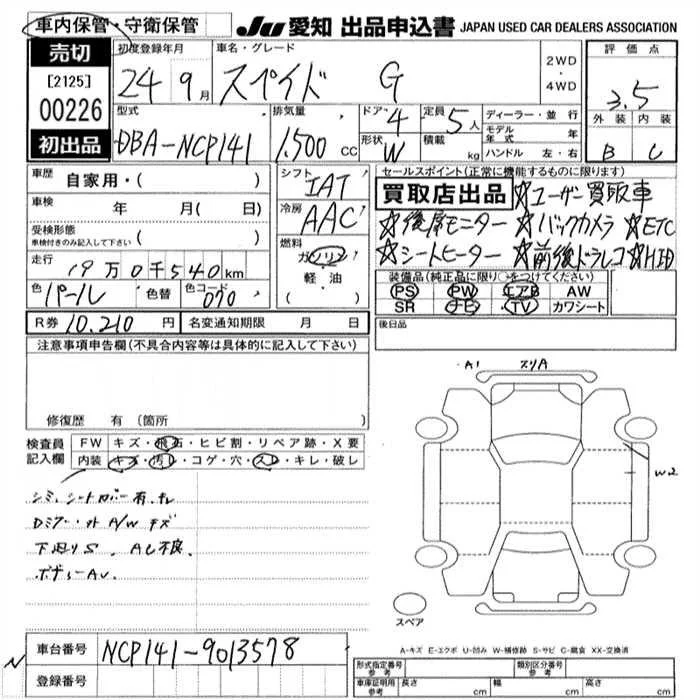 車内保管・守衛保管
JU 愛知 出品申込書 JAPAN USED CAR DEALERS ASSOCIATION
売切
[2125]
00226
初出品
初度登録年月
24年9月
車名・グレード
スペイド G
2WD
・
4WD
評価点
3.5
外装 内装
B C
型式
DBA-NCP141
排気量
1.500 CC
ドア 4
形状 W
定員 5人
積載 kg
ディーラー・並行
モデル年式 年
ハンドル 左・右
車歴 自家用・( )
車検 年 月( 日)
受検形態
車検付きのみ記入して下さい ( )
走行 19万0千540km
色 パール 色替 色コード 070
シフト IAT
冷房 AAC
燃料
ガソリン
軽油
( )
セールスポイント(正常に機能するものに限ります)
買取店出品 ☆ユーザー買取車
☆後席モニター ☆バックカメラ ☆ETC
☆シートヒーター ☆前後ドラレコ ☆HID
装備品(純正品に限り○をつけてください)
PS PW エアB AW
SR ナビ TV カワシート
R券 10.210 円 名変通知期限 月 日
後日品
注意事項申告欄(不具合内容等は具体的に記入して下さい)
修復歴 有(箇所
検査員記入欄
FW キズ・飛石・ヒビ割・リペア跡・X要
内装 キズ・汚レ・コゲ・穴・スレ・キレ・破レ
シミ、シートカバー有、キレ
Dミラー・外 A/W キズ
下廻りS、AC不良、
ボデーAU.
A1 スリA
W2
スペア
A-キズ E-エクボ U-凹み W-補修跡 S-サビ C-腐食 XX-交換済
N
車台番号 NCP141-9013578
登録番号
形式指定番号 参考
類別区分番号 参考
車庫証明用 参考
長さ cm 幅 cm 高さ cm